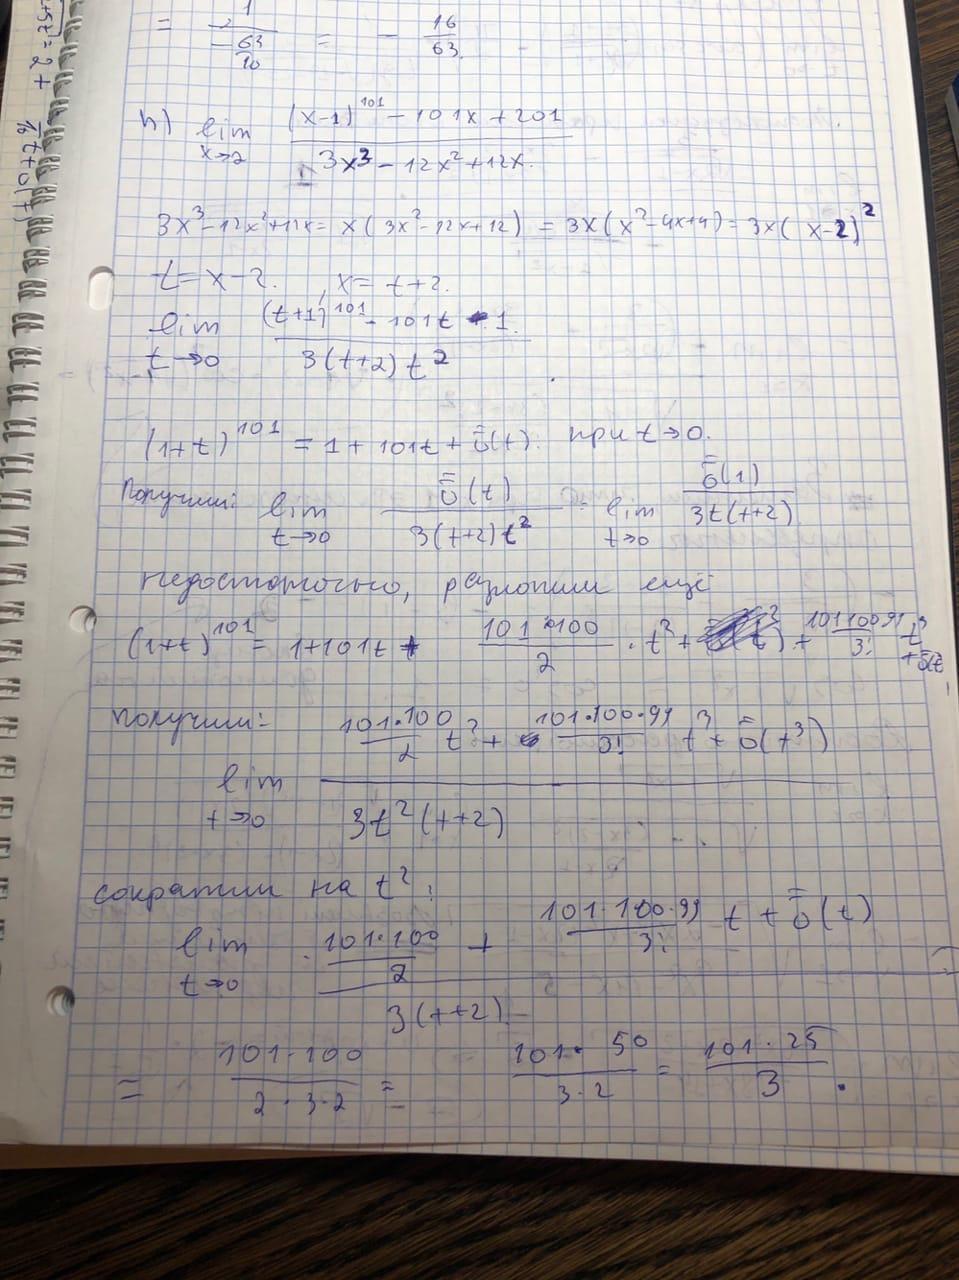 = 1 / (- 63/20) = - 16/63.
h) lim x→2 ((x-1)^101 - 101x + 201) / (3x³ - 12x² + 12x).
3x³ - 12x² + 12x = x(3x² - 12x + 12) = 3x(x² - 4x + 4) = 3x(x-2)²
t = x - 2, x = t + 2.
lim t→0 ((t+1)^101 - 101t - 1) / (3(t+2)t²).
(1+t)^101 = 1 + 101t + ō(t). при t→0.
Получим: lim t→0 ō(t) / (3(t+2)t²) = lim t→0 ō(1) / (3t(t+2))
Недостаточно, разложим ещё
(1+t)^101 = 1 + 101t + (101·100)/2 · t² + (101·100·99)/3! t³ + ō(t
Получим: lim t→0 ((101·100)/2 t² + (101·100·99)/3! t³ + ō(t³)) / (3t²(t+2))
сократим на t²:
lim t→0 ((101·100)/2 + (101·100·99)/3! t + ō(t)) / (3(t+2))
= (101·100)/(2·3·2) = (101·50)/(3·2) = (101·25)/3.